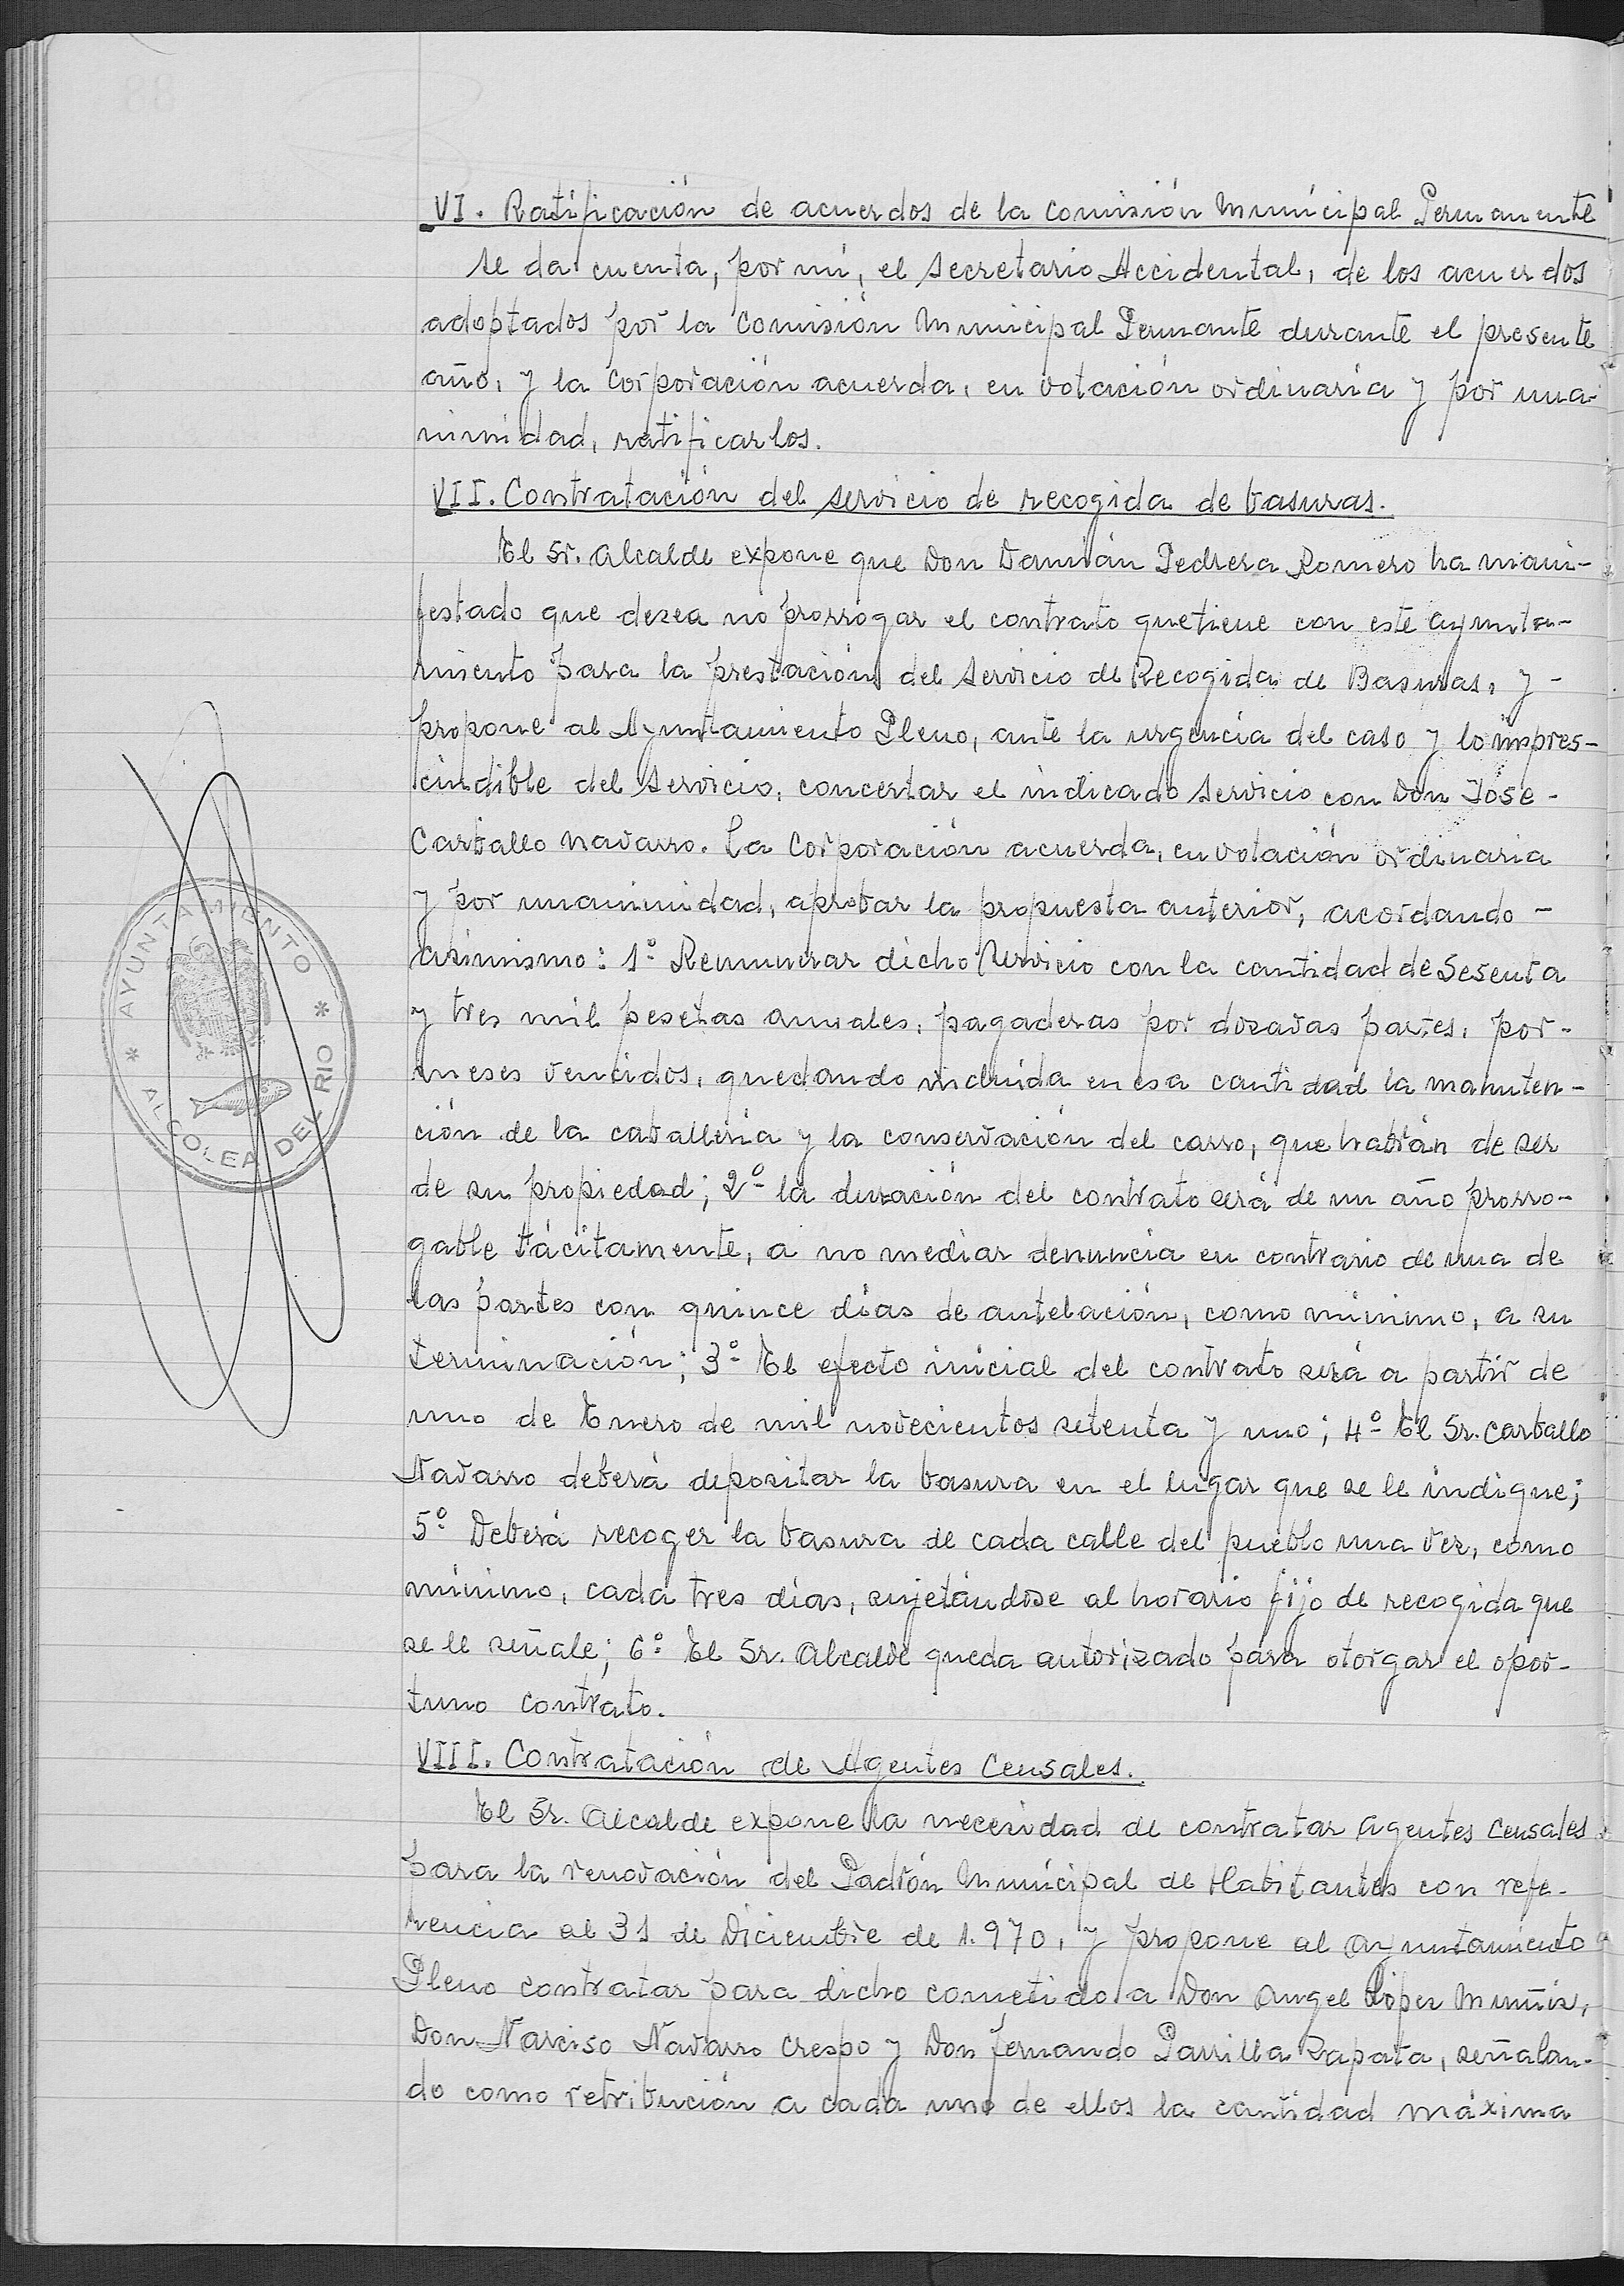 VI. Ratificación de acuerdos de la Comisión Municipal Permanente
Se da cuenta, por mi, el Secretario Accidental, de los acuerdos
adoptados por la Comisión Municipal Permante durante el presente
año, y la Corporación acuerda, en votación ordinaria y por una-
nimidad, ratificarlos.
VII. Contratación del servicio de recogida de basuras.
El Sr. Alcalde expone que Don Damián Pedrera Romero ha mani-
festado que desea no prorrogar el contrato que tiene con este Ayunta-
miento para la prestación del Servicio de Recogida de Basuras, y -
propone al Ayuntamiento Pleno, ante la urgencia del caso y lo impres-
cindible del Servicio, concertar el indicado Servicio con Don José -
Carballo Navarro. La Corporación acuerda, en votación ordinaria
y por unanimidad, aprobar la propuesta anterior, acordando -
asimismo: 1º Remunerar dicho Servicio con la cantidad de Sesenta
y tres mil pesetas anuales, pagaderas por dozavas partes, por -
meses vencidos, quedando incluida en esa cantidad la manuten-
ción de la caballeria y la conservación del carro, que habrán de ser
de su propiedad; 2º la duración del contrato será de un año prorro-
gable tácitamente, a no mediar denuncia en contrario de una de
las partes con quince días de antelación, como mínimo, a su
terminación; 3º El efecto inicial del contrato será a partir de
uno de Enero de mil novecientos setenta y uno; 4º El Sr. Carballo
Navarro deberá depositar la basura en el lugar que se le indique;
5º Deberá recoger la basura de cada calle del pueblo una vez, como
mínimo, cada tres días, sujetándose al horario fijo de recogida que
se le señale; 6º El Sr. Alcalde queda autorizado para otorgar el opor-
tuno contrato.
VIII. Contratación de Agentes Censales.
El Sr. Alcalde expone la necesidad de contratar Agentes Censales
para la renovación del Padrón Municipal de Habitantes con refe-
rencia al 31 de Diciembre de 1.970, y propone al Ayuntamiento
Pleno contratar para dicho cometido a Don Angel López Muñiz,
Don Narciso Navarro Crespo y Don Fernando Parrilla Zapata, señalan-
do como retribución a cada uno de ellos la cantidad máxima
AYUNTAMIENTO
* ALCOLEA DEL RIO *